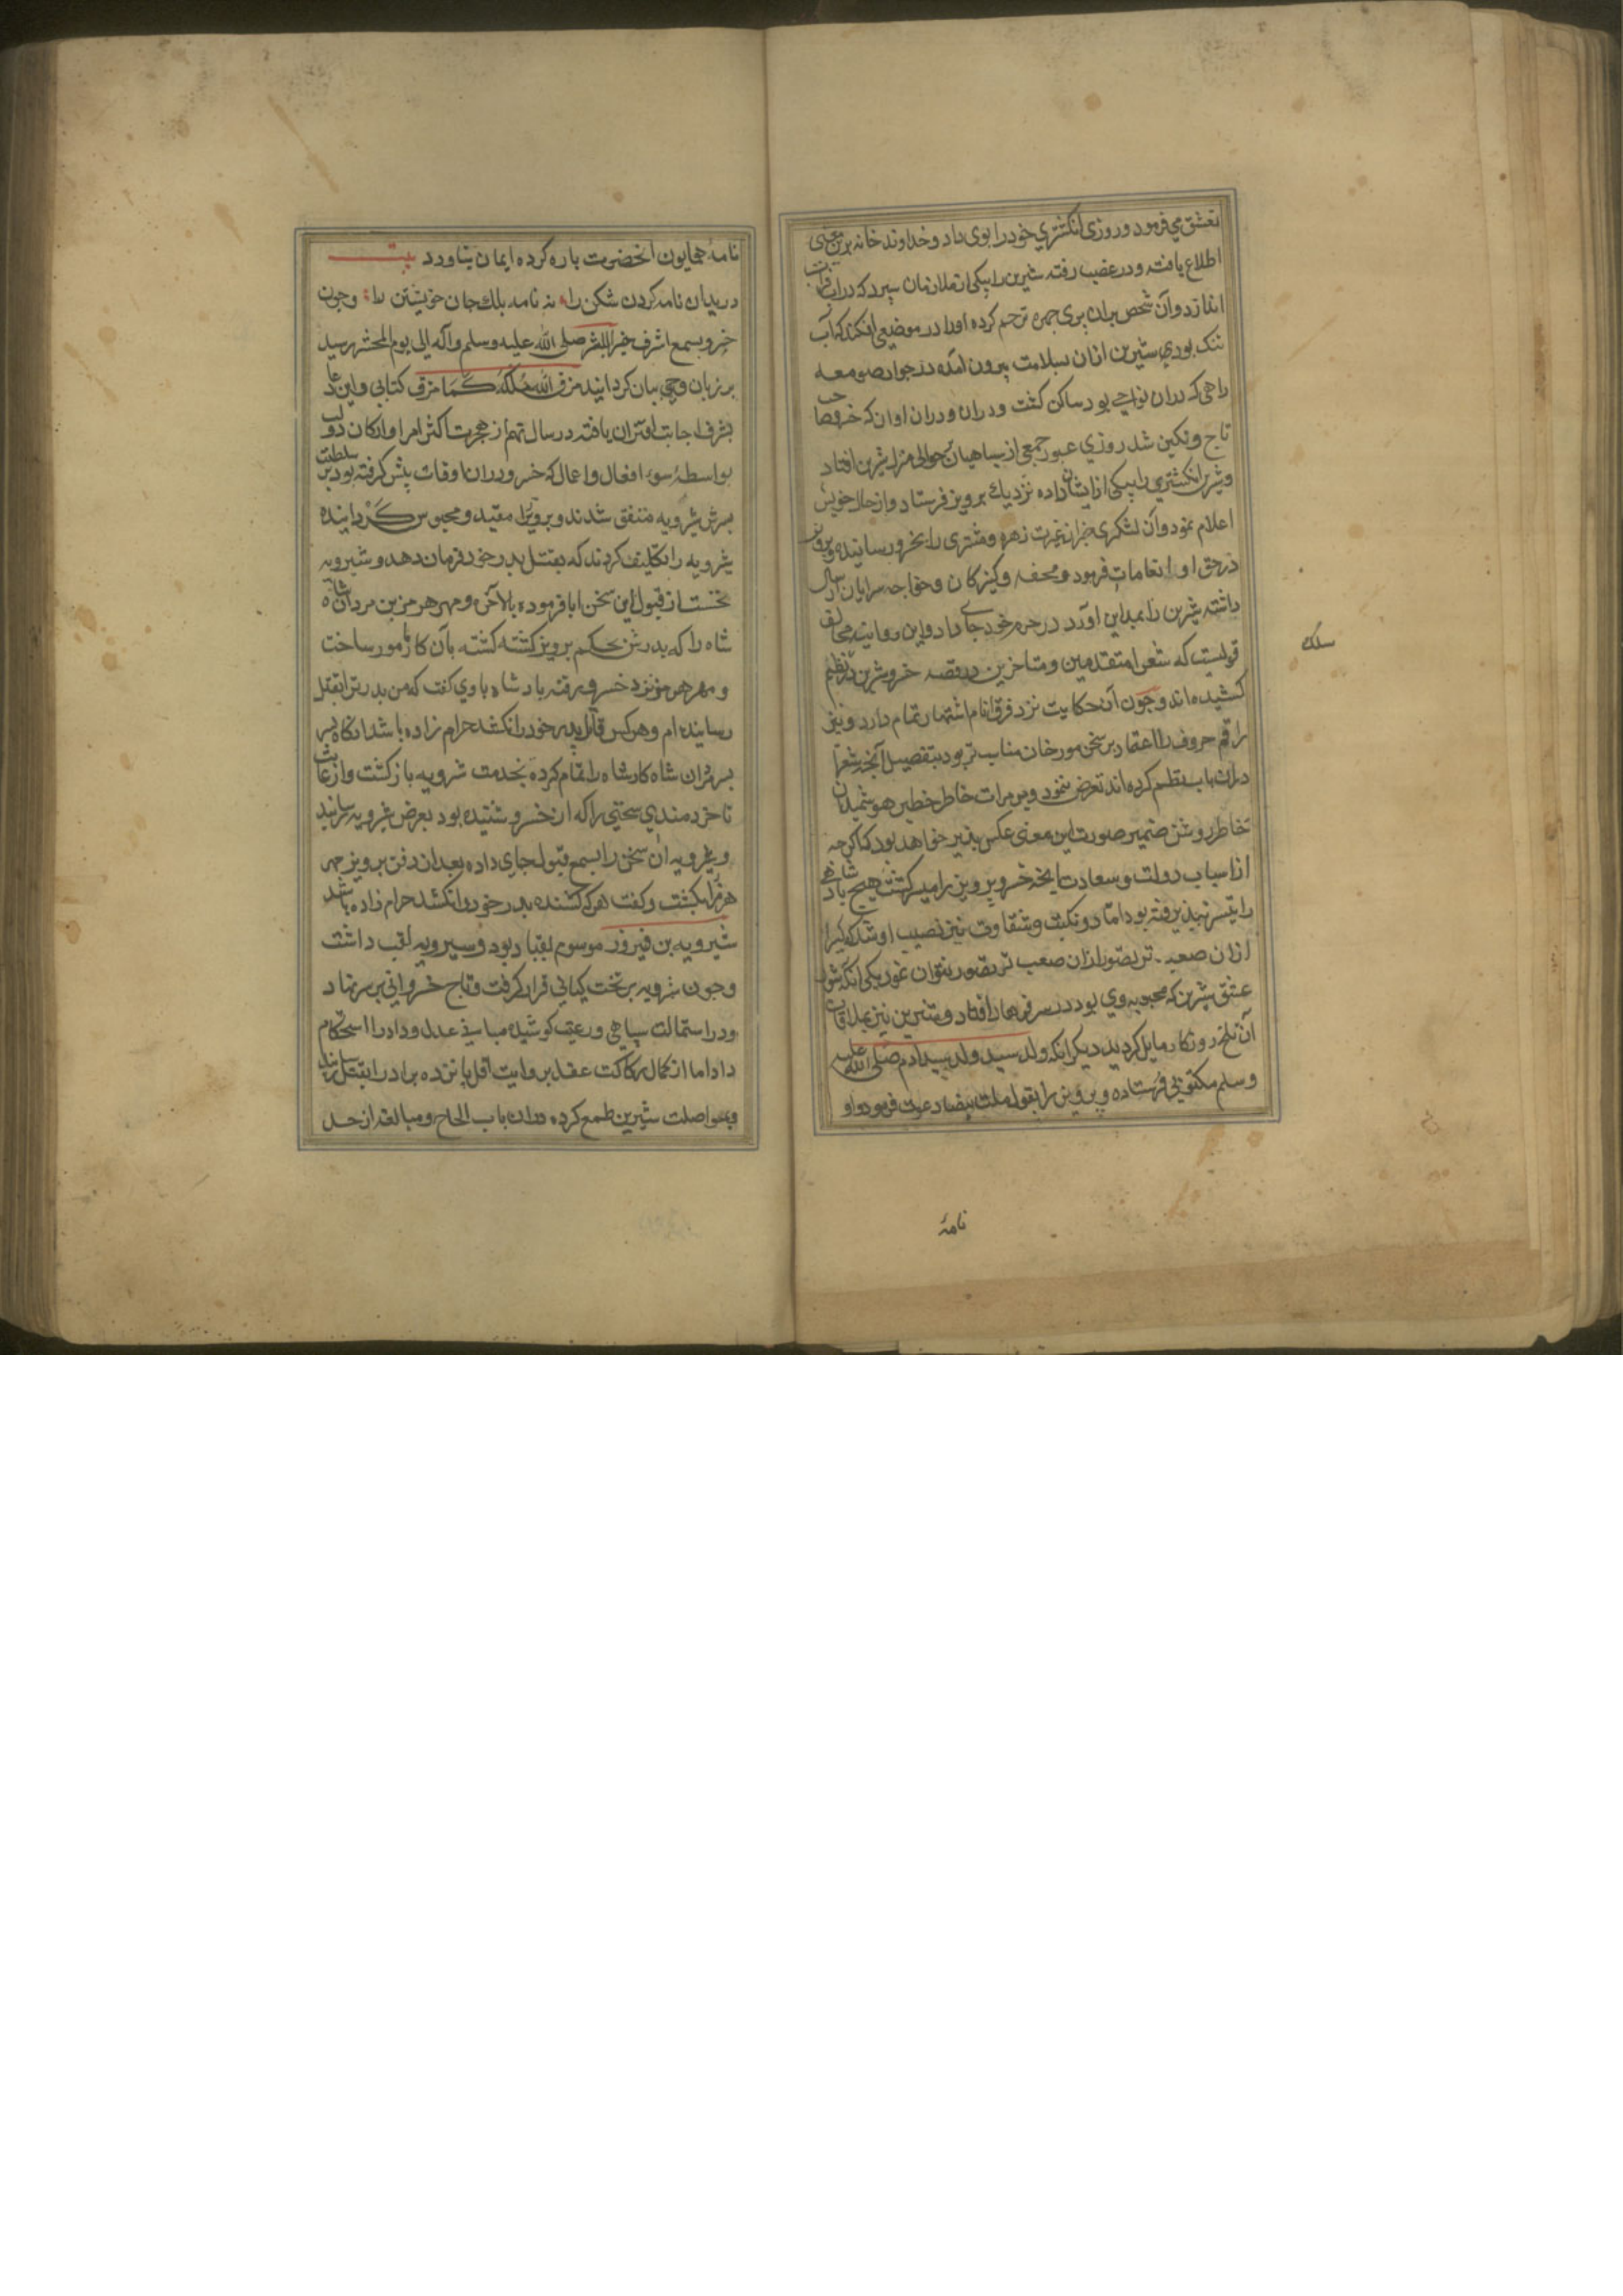 تعشق می فرمود و روزی انکشتری خود را بوی داد و خداوند خانه برین معنی
اطلاع یافته و در غضب رفته شیرین را بیکی از ملازمان سپرد که در آب فرات
اندازد و آن شخص بران پری چهره ترحم کرده او را در موضعی افکند که آب
تنک بود و شیرین ازان بسلامت بیرون آمده در جوار صومعه
راهی که دران نواحی بود ساکن کشت و دران اوان که خسرو صاحب
تاج و نکین شد روزی عبور جمعی از سپاهیان بر حوالی منزل شیرین افتاد
و شیرین انکشتری را بیکی از ایشان داده نزدیک پرویز فرستاد و از حال خویش
اعلام نمود و آن لشکری خبر غیرت زهره و مشتری را بخسرو رسانیده و پرویز
در حق او انعامات فرمود و محفه و کنیزکان و خواجه سرایان ارسال
داشته شیرین را بمداین آورد در حرم خود جای داد و این روایت مخالف
قولیست که شعرا متقدمین و متاخرین در قصه خسرو شیرین در نظم
کشیده اند و چون آن حکایت نزد فرق انام اشتهار تمام دارد و نیز
راقم حروف را اعتقاد بر سخن مورخان مناسب تر بود بتفصیل آنچه شعرا
دران باب نظم کرده اند تعرض ننمود و بر مرات خاطر خطیر هوشمندان
خاطر روشن ضمیر صورت این معنی عکس پذیر خواهد بود که اکرچه
از اسباب دولت و سعادت آنچه خسرو پرویز را میسر کشت هیچ پادشاهی
را تیسر نپذیرفته بود اما دو نکبت و شقاوت نیز نصیب او شد که کسی را
ازان صعب تر تصور ازان صعب تر تصور نتوان نمود یکی آنکه شور
عشق شیرین که محبوبه وی بود در سر فرهاد افتاد و شیرین نیز بملاقات
آن تلخ روزکار مایل کردید دیکر انکه ولد سید ولد سید آدم صلی الله علیه
و سلم مکتوبی فرستاده و پرویز را بقبول ملت بیضا دعوت فرمود و او
نامهٔ
نامهٔ همایون انحضرت پاره کرده ایمان نیاورد بیت
دریدان نامه کردن شکن را نه نامه بلک جان خویشتن را و چون
خبر و بسمع اشرف خیر البشر صلی الله علیه وسلم و آله الی یوم المحشر رسید
بر زبان وحی بیان کردانید مزق الله ملکه کما مزق کتابی و این دعا
بشرف اجابت اقتران یافته در سال نهم از هجرت اکثر امرا و ارکان دولت
بواسطهٔ سوء افعال و اعمال که خسرو دران اوقات پیش کرفته بود بر سلطنت
پسرش شیرویه متفق شدند و پرویز را مقید و محبوس کردانیده
شیرویه را تکلیف کردند که بقتل پدر خود فرمان دهد و شیرویه
نخست از قبول این سخن ابا فرموده بالآخر و مهر هرمز بن مردان شاه
شاه را که پدرش بحکم پرویز کشته کشته بآن کار مامور ساخت
و مهر هرمز نزد خسرو رفته پادشاه باوی کفت که من پدر ترا بقتل
رسانیده ام و هر کس قاتل پدر خود را نکشد حرام زاده باشد انکاه پسر
پسر مردان شاه کار شاه را تمام کرده بخدمت شرویه باز کشت و از غایت
نا خردمندی سخنی را که از خسرو شنیده بود بعرض شرویه رسانید
و شرویه ان سخن را بسمع قبول جای داده بعد از دفن پرویز مهر
هرمز را بکشت و کفت هر که کشنده پدر خود را نکشد حرام زاده باشد
شیرویه بن فیروز موسوم بقباد بود و سیرویه لقب داشت
و چون شرویه بر تخت کیانی قرار کرفت و تاج خسروانی بر سر نهاد
و در استمالت سپاهی و رعیت کوشیده مبانی عدل و داد را استحکام
داد اما از کمال رکاکت عقل بروایت اقل پانزده برادر را بقتل رسانید
و بمواصلت شیرین طمع کرده دران باب الحاح و مبالغه از حد